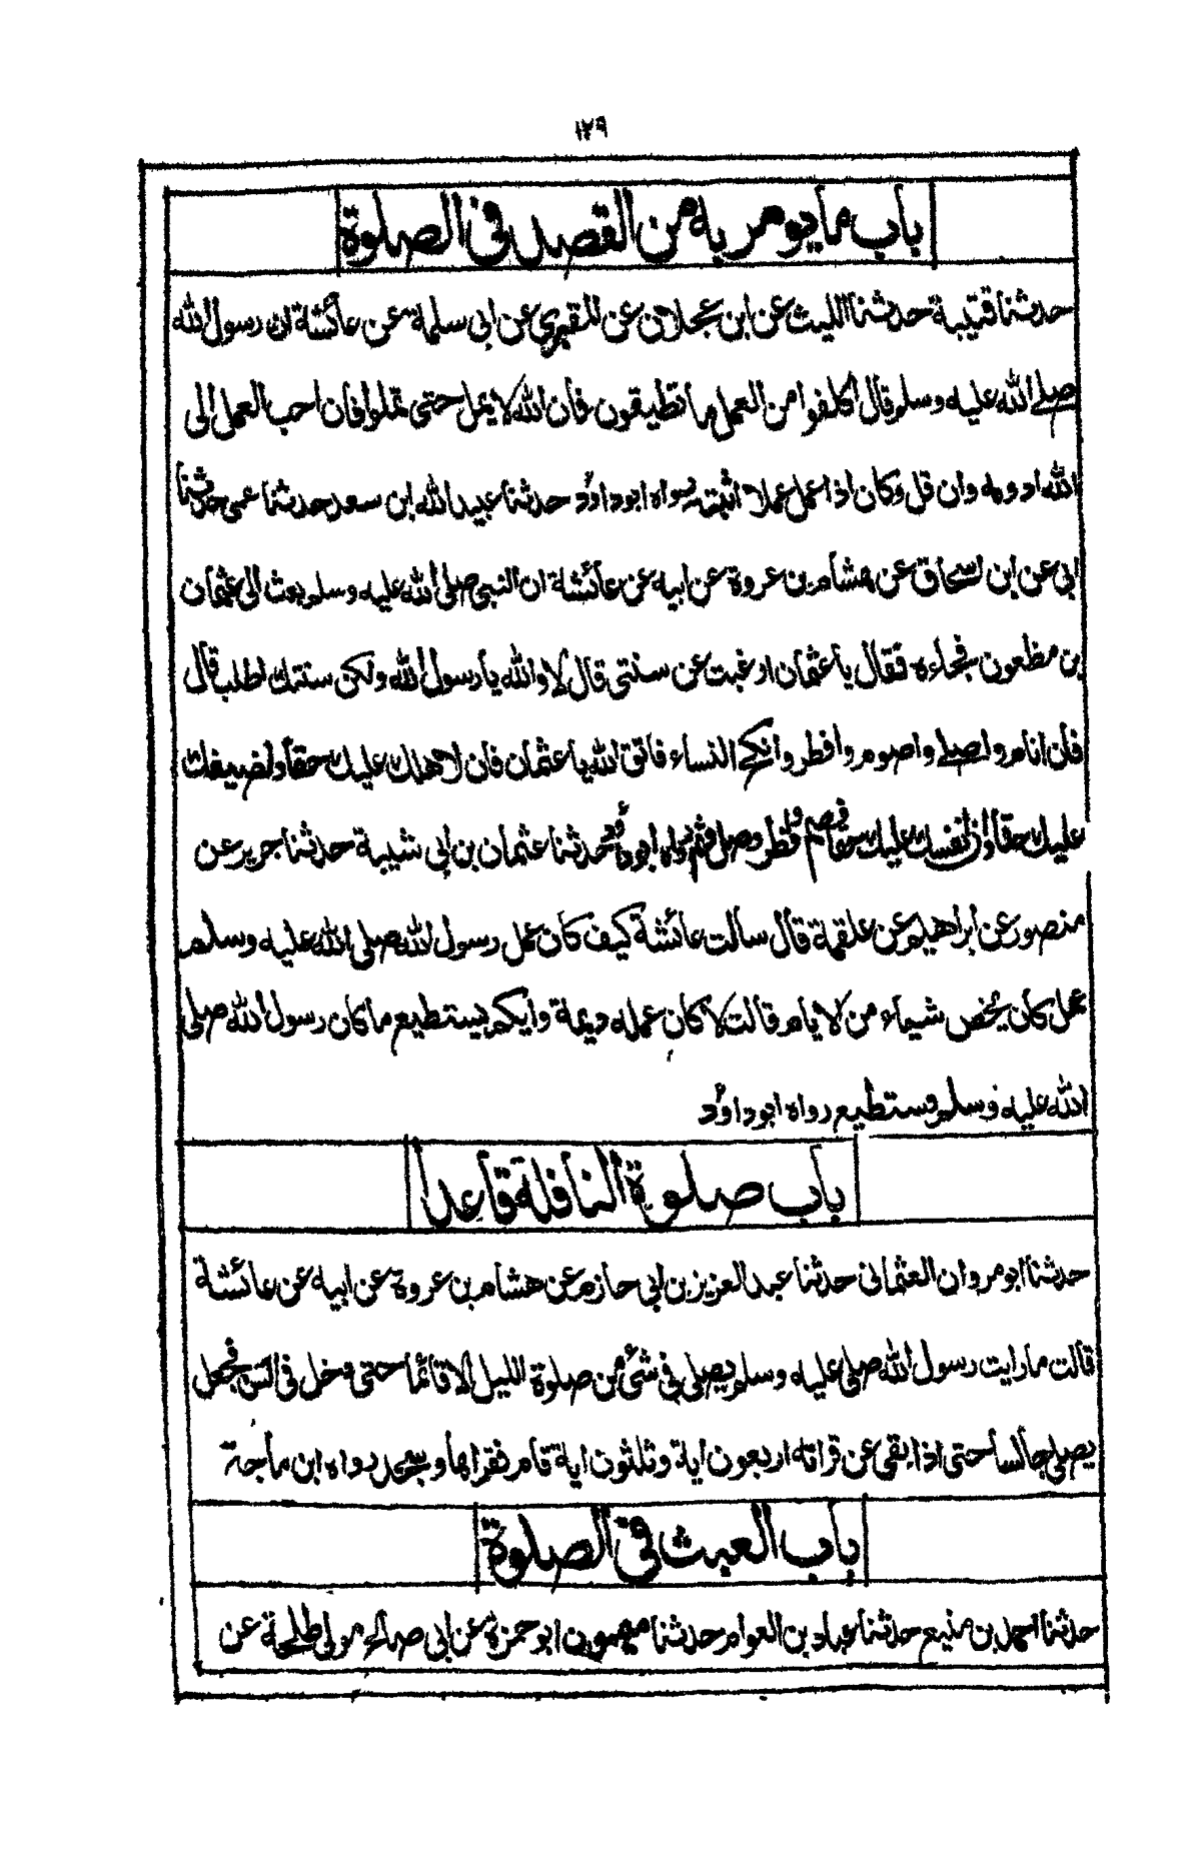 ١٢٩
باب ما يومر به من القصد فى الصلوة
حدثنا قتيبة حدثنا الليث عن ابن عجلان عن المقبري عن ابى سلمة عن عائشة ان رسول الله
صلے الله عليه وسلم قال اكلفوا من العمل ما تطيقون فان الله لا يمل حتى تملوا فان احب العمل الى
الله ادومه وان قل وكان اذا عمل عملا اثبته رواه ابوداؤد حدثنا عبيد الله ابن سعد حدثنا عمى حدثنا
ابى عن ابن اسحاق عن هشام بن عروة عن ابيه عن عائشة ان النبى صلى الله عليه وسلم بعث الى عثمان
بن مظعون فجاءه فقال يا عثمان ارغبت عن سنتى قال لا والله يا رسول الله ولكن سنتك اطلب قال
فان انام واصلے واصوم وافطر وانكح النساء فاتق الله يا عثمان فان لاهلك عليك حقا ولضيفك
عليك حقا وان لنفسك عليك حقا فصم وافطر وصل ونم رواه ابوداؤد حدثنا عثمان بن ابى شيبة حدثنا جرير عن
منصور عن ابراهيم عن علقمة قال سالت عائشة كيف كان عمل رسول الله صلى الله عليه وسلم
عمل كان يخص شيماء من لايام قالت لا كان عمله ديمة وايكم يستطيع ما كان رسول الله صلى
الله عليه وسلم يستطيع رواه ابوداؤد
باب صلوة النافلة قاعدا
حدثنا ابومروان العثمانى حدثنا عبد العزيز بن ابى حازم عن هشام بن عروة عن ابيه عن عائشة
قالت مارايت رسول الله صلى عليه وسلم يصلى فى شئ من صلوة الليل الا قائما حتى دخل فى السن فجعل
يصلى جالسا حتى اذا بقى عن قراته اربعون اية وثلثون اية قام فقراها وسجد رواه ابن ماجة
باب العبث فى الصلوة
حدثنا احمد بن منيع حدثنا عباد بن العوام حدثنا ميمون ابوحمزة عن ابى صالح مولى طلحة عن